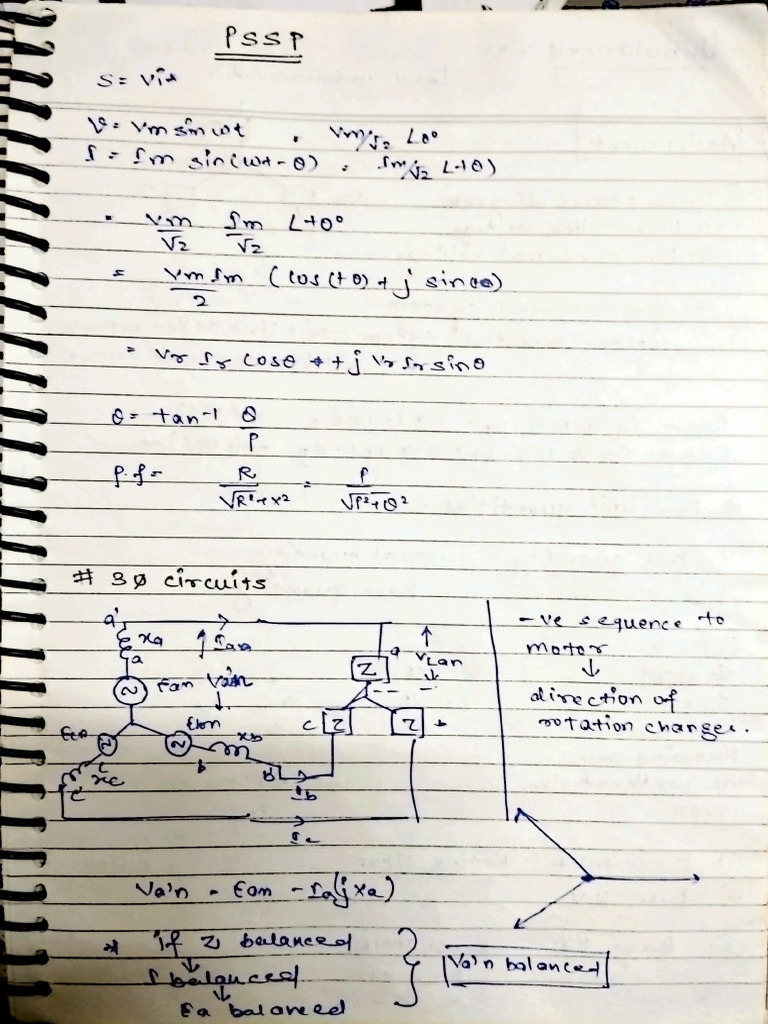 PSSP
S = Vi*
V = Vm sin wt = Vm/√2 ∠0°
I = Im sin(wt - θ) = Im/√2 ∠-θ)
= Vm/√2 Im/√2 ∠+θ°
= VmIm/2 (cos(+θ) + j sin(+θ))
= Vr Ir cosθ + j Vr Ir sinθ
θ = tan-1 Q/P
P.f = R/√R²+x² = P/√P²+Q²
# 3Ø circuits
a' xa a Ean
Iaa Va'n
Z a VLan
Ecn c xc c'
Ebn b xb b' Ib
c Z Z b
Ic
-ve sequence to
motor
↓
direction of
rotation changes.
Va'n = Ean - Ia(jxa)
* if Z balanced
↓
I balanced
↓
Ea balanced
Va'n balanced